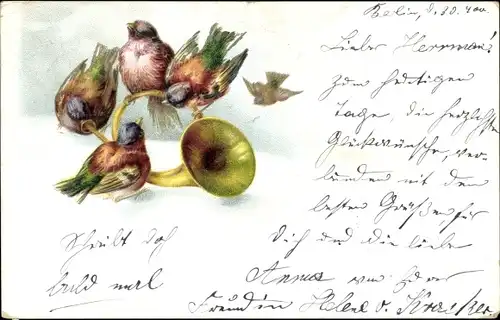 Berlin, d. 30. 4. 00.
Lieber Herrman!
zum heutigen
Tage, die herzlichsten
Glückwünsche, ver-
bunden mit den
besten Grüßen, für
Dich und die liebe
Anna von Ihrer
Freundin Helene v.
Schreibt doch
bald mal